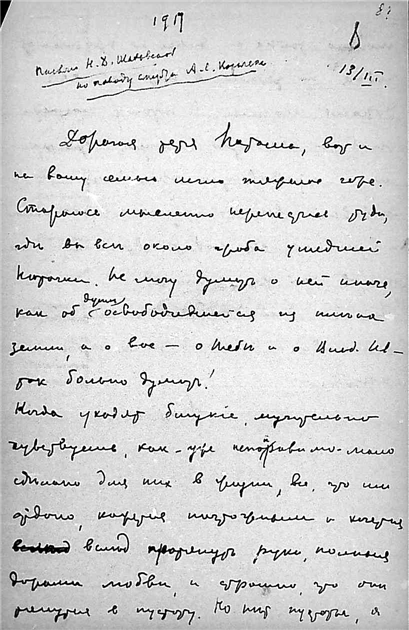 1917
13/III.
по поводу смерти
Дорогая тётя Наташа, вот и
на вашу семью легло тяжёлое горе.
Стараюсь мысленно перенестись туда,
где вы все около гроба ушедшей
Не могу думать о ней иначе,
как об душе освободившейся из плена
земли, а о вас — о Тебе и о Влад. Ив. —
так больно думать!
Когда уходят близкие, мучительно
чувствуешь, как уже непоправимо мало
сделано для них в жизни, все, что им
отдано, кажется ничтожным и хочется
вслед протянуть руки, полные
дарами любви, и страшно, что они
в пустоту. Но нет пустоты, а